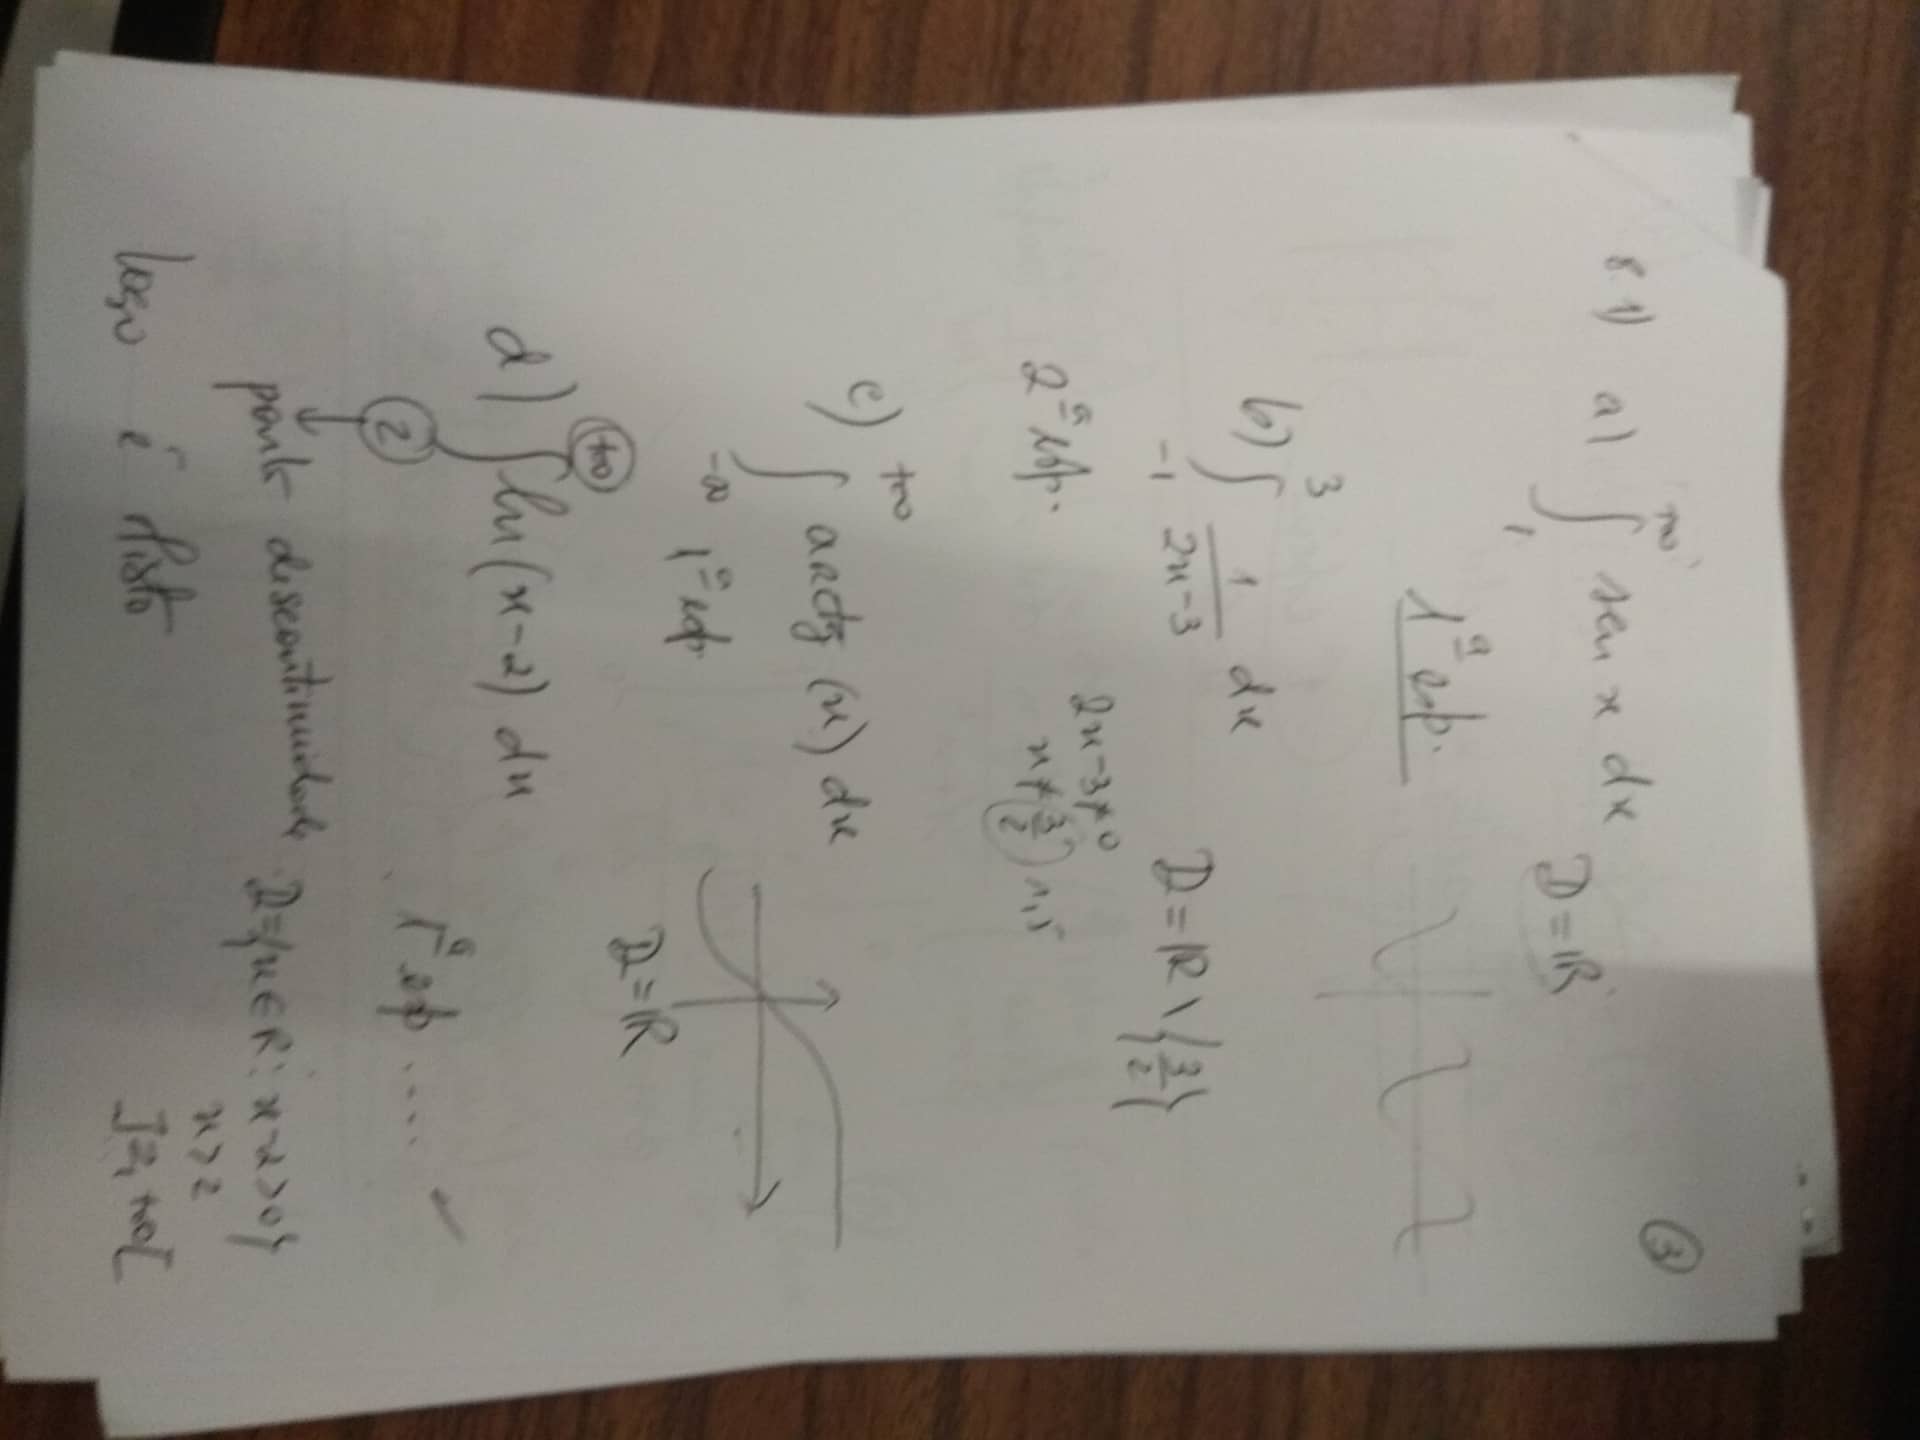 ③
8.1) a) ∫₁^{+∞} sen x dx
D = ℝ
1ª esp.
b) ∫₋₁^{3} 1/(2x-3) dx
D = ℝ \ {3/2}
2ª esp.
2x-3≠0
x≠3/2 1,5
c) ∫_{-∞}^{+∞} arctg (x) dx
1ª esp
D=ℝ
d) ∫₂^{+∞} ln(x-2) dx
1ª esp ....
ponto discontinuidade
D={x∈R: x-2>0}
x>2
]2,+∞[
logo é Misto